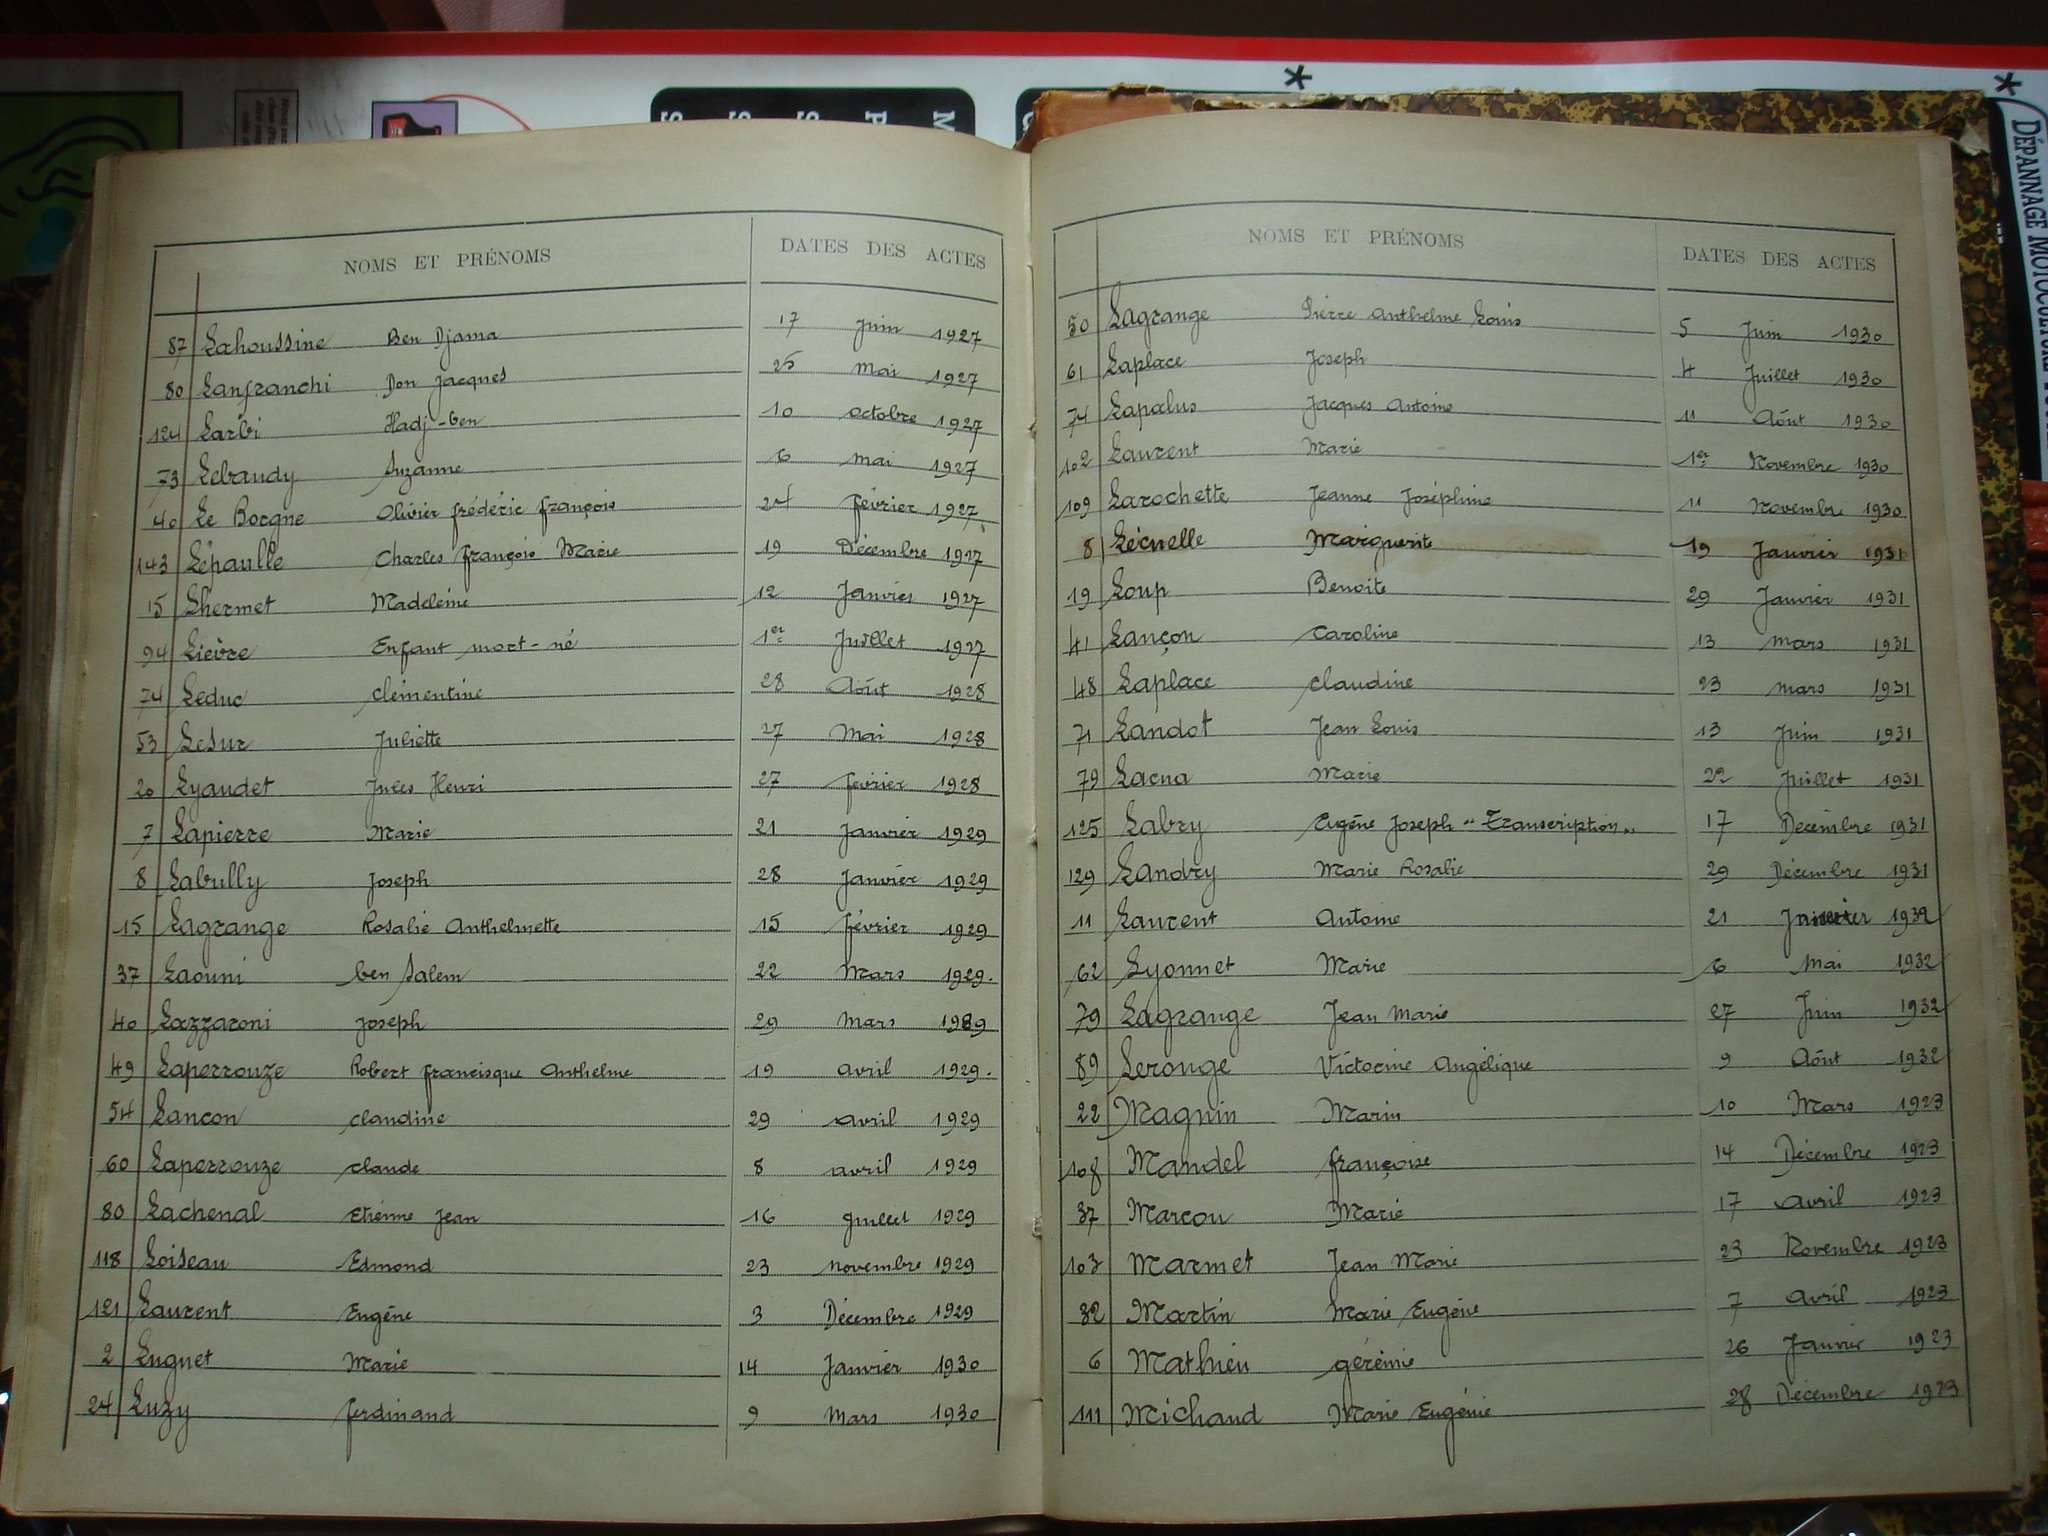 DÉPANNAGE MOTOCULTURE
NOMS ET PRÉNOMS DATES DES ACTES
87 Lahoussine Ben Djama 17 Juin 1927
80 Lanfranchi Don Jacques 25 Mai 1927
124 Larbi Hadj-ben 10 octobre 1927
73 Lebaudy Suzanne 6 Mai 1927
40 Le Borgne Olivier frédéric françois 24 février 1927
143 Lépaulle Charles françois Marie 19 Décembre 1927
15 Lhermet Madeleine 12 Janvier 1927
94 Lièvre Enfant mort-né 1er Juillet 1927
74 Leduc clémentine 28 Aôut 1928
53 Lesur Juliette 27 Mai 1928
20 Lyaudet Jules Henri 27 février 1928
7 Lapierre Marie 21 Janvier 1929
8 Labully Joseph 28 Janvier 1929
15 Lagrange Rosalie Anthelmette 15 février 1929
37 Laouni ben Salem 22 Mars 1929.
40 Lazzaroni Joseph 29 Mars 1929
49 Laperrouze Robert francisque Anthelme 19 avril 1929.
54 Lancon claudine 29 avril 1929
60 Laperrouze claude 8 avril 1929
80 Lachenal Etienne Jean 16 juillet 1929
118 Loiseau Edmond 23 novembre 1929
121 Laurent Eugène 3 Décembre 1929
2 Luguet Marie 14 Janvier 1930
24 Luzy ferdinand 9 Mars 1930
NOMS ET PRÉNOMS DATES DES ACTES
50 Lagrange Pierre Anthelme Louis 5 Juin 1930
61 Laplace Joseph 4 Juillet 1930
74 Lapalus Jacques Antoine 11 Aôut 1930
102 Laurent Marie 1er Novembre 1930
109 Larochette Jeanne Joséphine 11 Novembre 1930
8 Lécuelle Marguerite 19 Janvier 1931
19 Loup Benoite 29 Janvier 1931
41 Lançon Caroline 13 Mars 1931
48 Laplace claudine 23 Mars 1931
71 Landot Jean Louis 13 Juin 1931
79 Lacna Marie 22 Juillet 1931
125 Labry Eugène Joseph "Transcription" 17 Décembre 1931
129 Landry Marie Rosalie 29 Décembre 1931
11 Laurent Antoine 21 Janvier 1932
62 Lyonnet Marie 6 Mai 1932
79 Lagrange Jean Marie 27 Juin 1932
89 Leronge Victorine Angélique 9 Aôut 1932
22 Magnin Marin 10 Mars 1923
108 Mandel françoise 14 Décembre 1923
37 Marcou Marie 17 avril 1923
103 Marmet Jean Marie 23 Novembre 1923
32 Martin Marie Eugène 7 avril 1923
6 Mathieu gérémie 26 Janvier 1923
111 Michaud Marie Eugénie 28 Décembre 1923